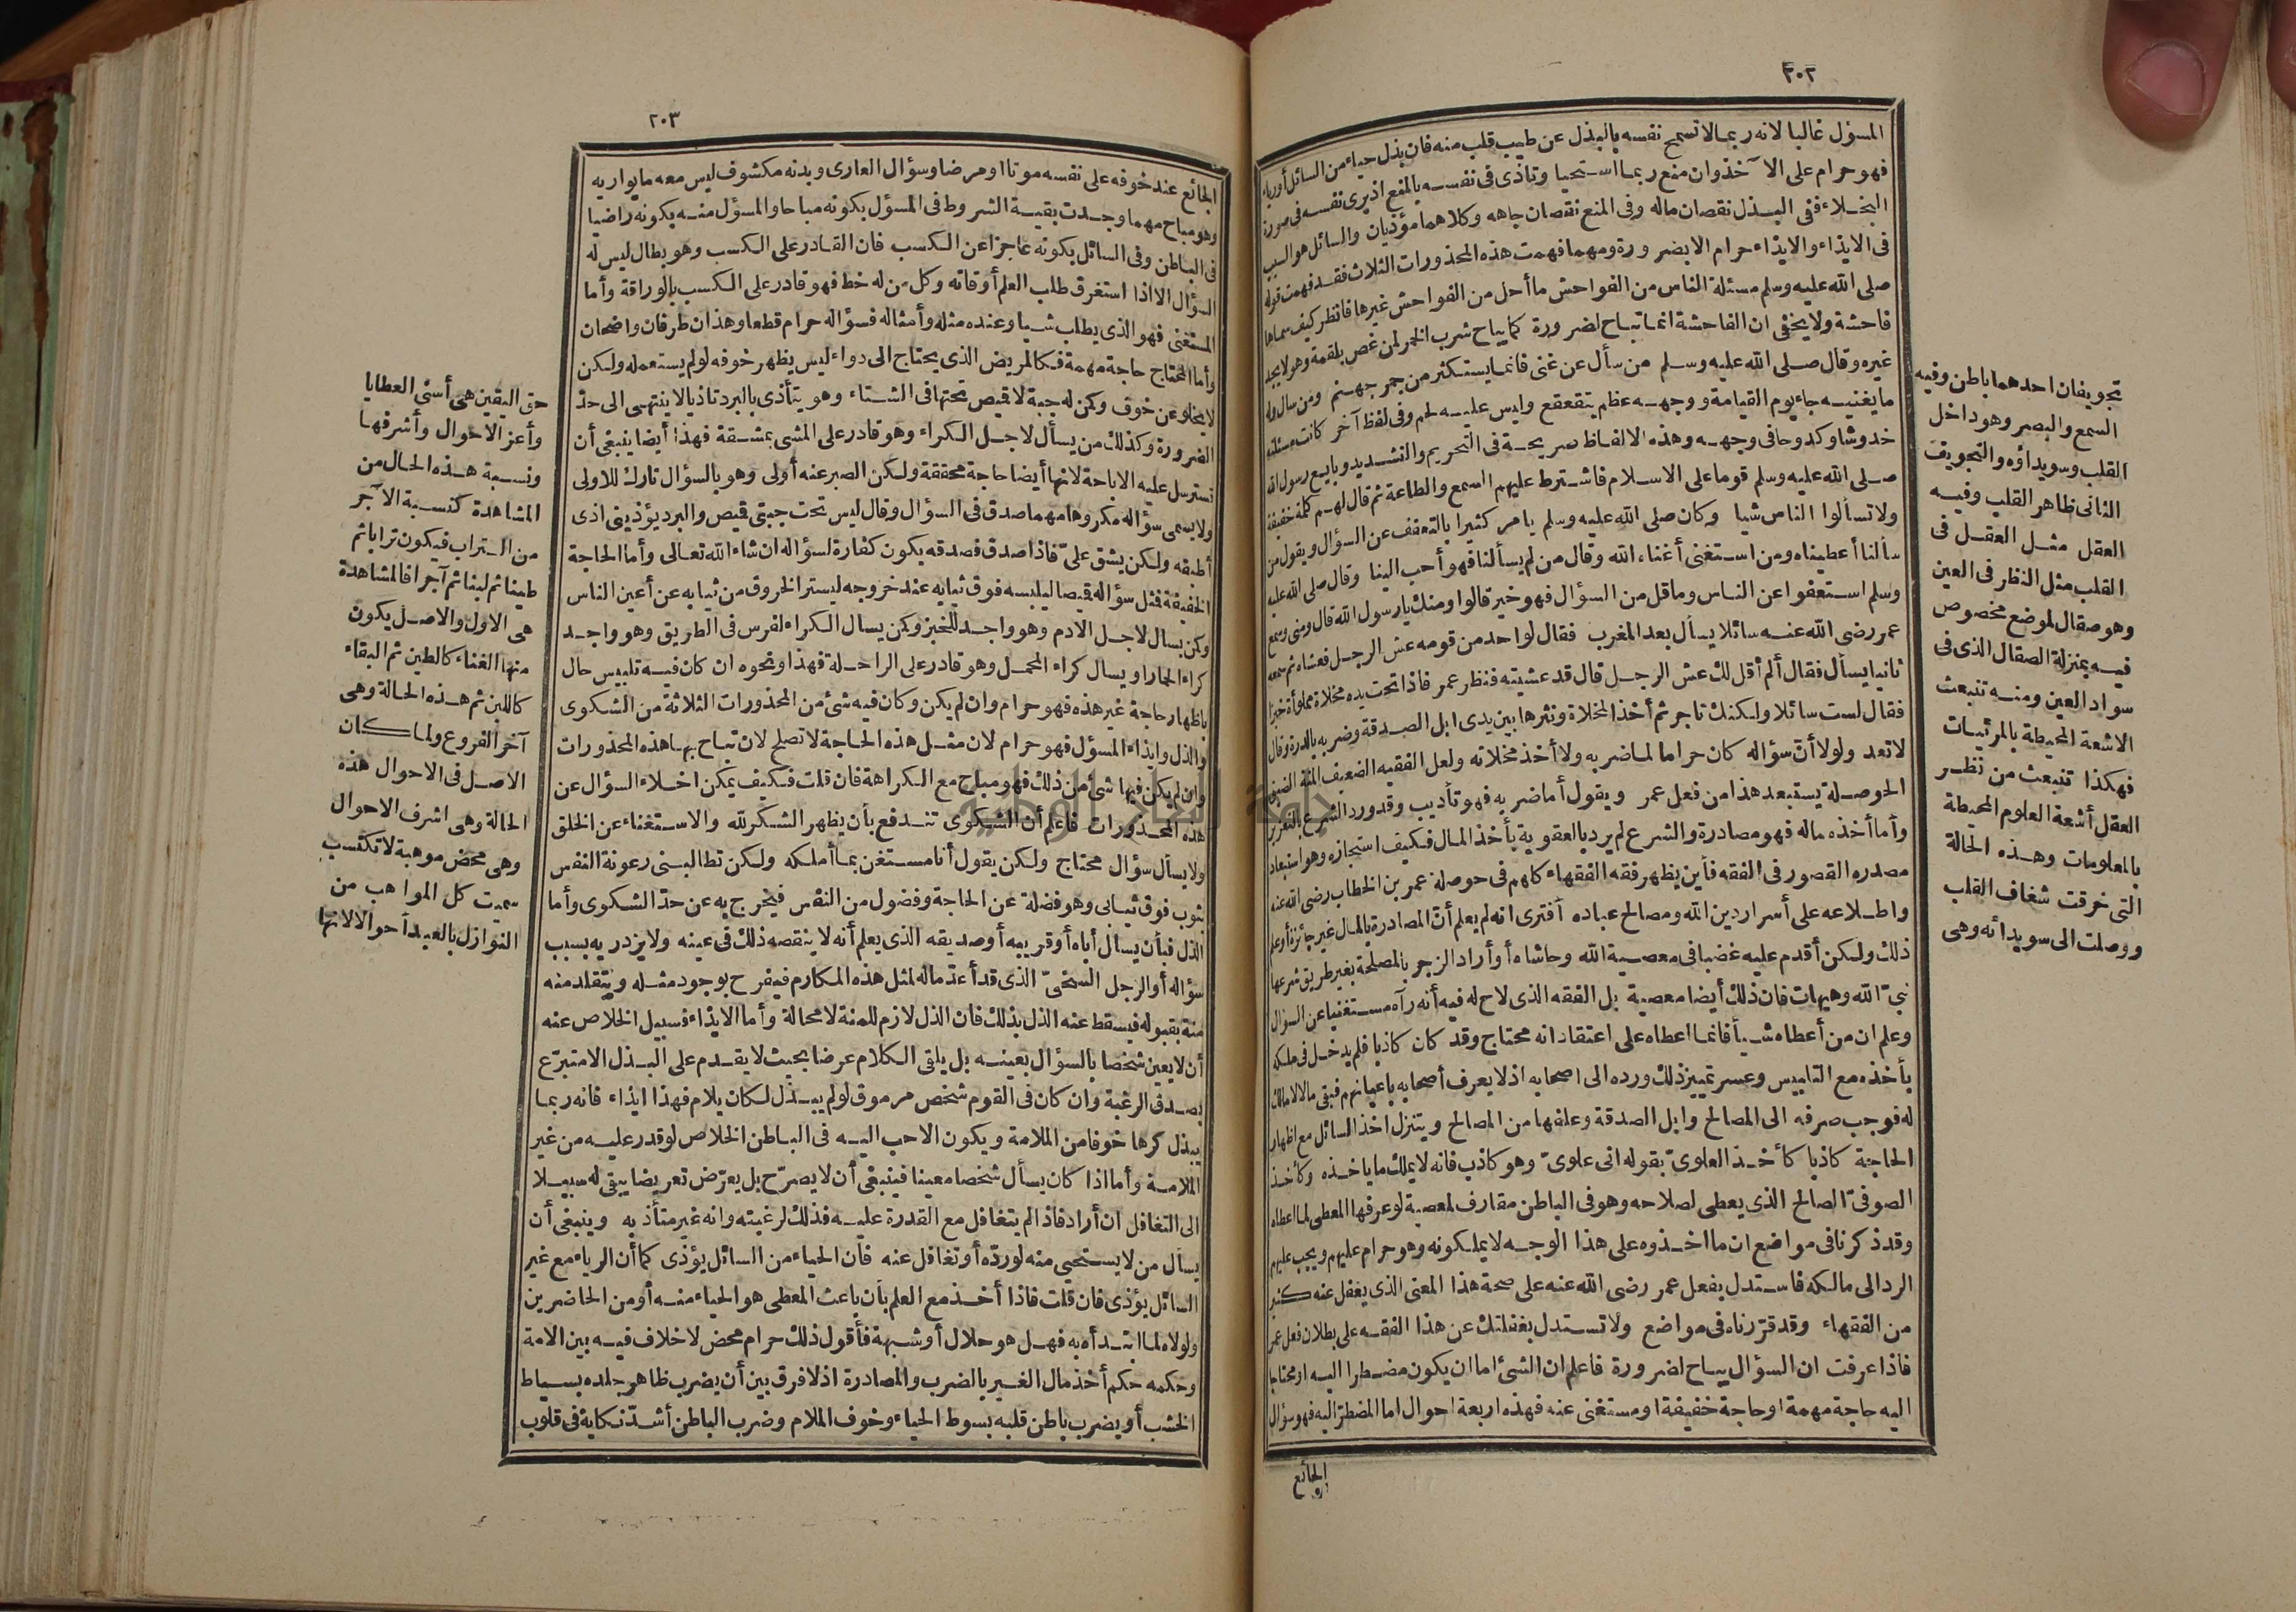 ٢٠٢
المسؤل غالبا لانه ربما لا تسمح نفسه بالبذل عن طيب قلب منه فان بذل حياء من السائل أو رياء
فهو حرام على الآخذ وان منع ربما استحيا وتاذى فى نفسه بالمنع اذ يرى نفسه فى صورة
البخلاء ففى البذل نقصان ماله وفى المنع نقصان جاهه وكلاهما مؤذيان والسائل هو السبب
فى الايذاء والايذاء حرام الا بضرورة ومهما فهمت هذه المحذورات الثلاث فقد فهمت قوله
صلى الله عليه وسلم مسئلة الناس من الفواحش ما أحل من الفواحش غيرها فانظر كيف سماها
فاحشة ولا يخفى ان الفاحشة انما تباح لضرورة كما يباح شرب الخمر لمن غص بلقمة وهو لا يجد
غيره وقال صلى الله عليه وسلم من سأل عن غنى فانما يستكثر من جمر جهنم ومن سأل وله
ما يغنيه جاء يوم القيامة ووجهه عظم يتقعقع وليس عليه لحم وفى لفظ آخر كانت مسئلته
خدوشا وكدوحا فى وجهه وهذه الالفاظ صريحة فى التحريم والتشديد وبايع رسول الله
صلى الله عليه وسلم قوما على الاسلام فاشترط عليهم السمع والطاعة ثم قال لهم كلمة خفيفة
ولا تسألوا الناس شيا وكان صلى الله عليه وسلم يامر كثيرا بالتعفف عن السؤال ويقول من
سألنا أعطيناه ومن استغنى أغناه الله وقال من لم يسألنا فهو أحب الينا وقال صلى الله عليه
وسلم استعفوا عن الناس وما قل من السؤال فهو خير قالوا ومنك يا رسول الله قال ومنى وسمع
عمر رضى الله عنه سائلا يسأل بعد المغرب فقال لواحد من قومه عش الرجل فعشاه ثم سمعه
ثانيا يسأل فقال ألم أقل لك عش الرجل قال قد عشيته فنظر عمر فاذا تحت يده مخلاة مملوأة خبزا
فقال لست سائلا ولكنك تاجر ثم أخذ المخلاة ونثرها بين يدى ابل الصدقة وضربه بالدرة وقال
لا تعد ولولا أن سؤاله كان حراما لما ضربه ولا أخذ مخلاته ولعل الفقيه الضعيف المنة الضيق
الحوصلة يستبعد هذا من فعل عمر ويقول أما ضربه فهو تأديب وقد ورد الشرع بالتعزير
وأما أخذه ماله فهو مصادرة والشرع لم يرد بالعقوبة بأخذ المال فكيف استجازه وهو استبعاد
مصدره القصور فى الفقه فأين يظهر فقه الفقهاء كلهم فى حوصلة عمر بن الخطاب رضى الله عنه
واطلاعه على أسرار دين الله ومصالح عباده أفترى انه لم يعلم أن المصادرة بالمال غير جائزة أو علم
ذلك ولكن أقدم عليه غضبا فى معصية الله وحاشاه أو أراد الزجر بالمصلحة بغير طريق شرعها
نبىّ الله وهيهات فان ذلك أيضا معصية بل الفقه الذى لاح له فيه أنه رآه مستغنيا عن السؤال
وعلم ان من أعطاه شيأ فانما اعطاه على اعتقاد انه محتاج وقد كان كاذبا فلم يدخل فى ملكه
بأخذه مع التلبيس وعسر تمييز ذلك ورده الى اصحابه اذ لا يعرف أصحابه باعيانهم فبقى مالا لا مالك
له فوجب صرفه الى المصالح وابل الصدقة وعلفها من المصالح ويتنزل اخذ السائل مع اظهار
الحاجة كاذبا كأخذ العلوىّ بقوله انى علوىّ وهو كاذب فانه لا يملك ما ياخذه وكأخذ
الصوفىّ الصالح الذى يعطى لصلاحه وهو فى الباطن مقارف لمعصية لو عرفها المعطى لما اعطاه
وقد ذكرنا فى مواضع ان ما اخذوه على هذا الوجه لا يملكونه وهو حرام عليهم ويجب عليهم
الرد الى مالكه فاستدل بفعل عمر رضى الله عنه على صحة هذا المعنى الذى يغفل عنه كثير
من الفقهاء وقد قررناه فى مواضع ولا تستدل بغفلتك عن هذا الفقه على بطلان فعل عمر
فاذا عرفت ان السؤال يباح لضرورة فاعلم ان الشئ اما ان يكون مضطرا اليه او محتاجا
اليه حاجة مهمة او حاجة خفيفة او مستغنى عنه فهذه اربعة احوال اما المضطر اليه فهو سؤال
الجائع
تجويفان احدهما باطن وفيه
السمع والبصر وهو داخل
القلب وسويداؤه والتجويف
الثانى ظاهر القلب وفيه
العقل مثل العقل فى
القلب مثل النظر فى العين
وهو صقال لموضع مخصوص
فيه بمنزلة الصقال الذى فى
سواد العين ومنه تنبعث
الاشعة المحيطة بالمرئيات
فهكذا تنبعث من نظر
العقل أشعة العلوم المحيطة
بالمعلومات وهذه الحالة
التى خرقت شغاف القلب
ووصلت الى سويدائه وهى
٢٠٣
الجائع عند خوفه على نفسه موتا او مرضا وسؤال العارى وبدنه مكشوف ليس معه ما يواريه
وهو مباح مهما وجدت بقية الشروط فى المسؤل بكونه مباحا والمسؤل منه بكونه راضيا
فى الباطن وفى السائل بكونه عاجزا عن الكسب فان القادر على الكسب وهو بطال ليس له
السؤال الا اذا استغرق طلب العلم أوقاته وكل من له خط فهو قادر على الكسب بالوراقة وأما
المستغنى فهو الذى يطلب شيا وعنده مثله وأمثاله فسؤاله حرام قطعا وهذان طرفان واضحان
وأما المحتاج حاجة مهمة فكالمريض الذى يحتاج الى دواء ليس يظهر خوفه لو لم يستعمله ولكن
لا يخلو عن خوف وكمن له جبة لا قميص تحتها فى الشتاء وهو يتأذى بالبرد تاذيا لا ينتهى الى حدّ
الضرورة وكذلك من يسأل لاجل الكراء وهو قادر على المشى بمشقة فهذا أيضا ينبغى أن
تسترسل عليه الاباحة لانها أيضا حاجة محققة ولكن الصبر عنه أولى وهو بالسؤال تارك للاولى
ولا يسمى سؤاله مكروها مهما صدق فى السؤال وقال ليس تحت جبتى قميص والبرد يؤذينى اذى
أطيقه ولكن يشق علىّ فاذا صدق فصدقه يكون كفارة لسؤاله ان شاء الله تعالى وأما الحاجة
الخفيفة فمثل سؤاله قميصا ليلبسه فوق ثيابه عند خروجه ليستر الخروق من ثيابه عن أعين الناس
وكمن يسال لاجل الادم وهو واجد للخبز وكمن يسال الكراء لفرس فى الطريق وهو واجد
كراء الحمار او يسال كراء المحمل وهو قادر على الراحلة فهذا ونحوه ان كان فيه تلبيس حال
باظهار حاجة غير هذه فهو حرام وان لم يكن وكان فيه شئ من المحذورات الثلاثة من الشكوى
والذل وايذاء المسؤل فهو حرام لان مثل هذه الحاجة لا تصلح لان تباح بها هذه المحذورات
وان لم يكن فيها شئ من ذلك فهو مباح مع الكراهة فان قلت فكيف يمكن اخلاء السؤال عن
هذه المحذورات فاعلم أن الشكوى تندفع بأن يظهر الشكر لله والاستغناء عن الخلق
ولا يسأل سؤال محتاج ولكن يقول أنا مستغن بما أملكه ولكن تطالبنى رعونة النفس
بثوب فوق ثيابى وهو فضلة عن الحاجة وفضول من النفس فيخرج به عن حدّ الشكوى وأما
الذل فبأن يسأل أباه أو قريبه أو صديقه الذى يعلم أنه لا ينقصه ذلك فى عينه ولا يزدريه بسبب
سؤاله أو الرجل السخىّ الذى قد أعدّ ماله لمثل هذه المكارم فيفرح بوجود مثله ويتقلد منه
منة بقبوله فيسقط عنه الذل بذلك فان الذل لازم للمنة لا محالة وأما الايذاء فسبيل الخلاص عنه
أن لا يعين شخصا بالسؤال بعينه بل يلقى الكلام عرضا بحيث لا يقدم على البذل الا متبرّع
بصدق الرغبة وان كان فى القوم شخص مرموق لو لم يبذل لكان يلام فهذا ايذاء فانه ربما
يبذل كرها خوفا من الملامة ويكون الاحب اليه فى الباطن الخلاص لو قدر عليه من غير
الملامة وأما اذا كان يسأل شخصا معينا فينبغى أن لا يصرّح بل يعرّض تعريضا يبقى له سبيلا
الى التغافل ان أراد فاذا لم يتغافل مع القدرة عليه فذلك لرغبته وانه غير متأذ به وينبغى أن
يسأل من لا يستحيى منه لو ردّه أو تغافل عنه فان الحياء من السائل يؤذى كما أن الرياء مع غير
السائل يؤذى فان قلت فاذا أخذ مع العلم بأن باعث المعطى هو الحياء منه أو من الحاضرين
ولولاه لما ابتدأه به فهل هو حلال أو شبهة فأقول ذلك حرام محض لا خلاف فيه بين الامة
وحكمه حكم أخذ مال الغير بالضرب والمصادرة اذ لا فرق بين أن يضرب ظاهر جلده بسياط
الخشب أو يضرب باطن قلبه بسوط الحياء وخوف الملام وضرب الباطن أشدّ نكاية فى قلوب
حق اليقين هى أسنى العطايا
وأعز الاحوال وأشرفها
ونسبة هذه الحال من
المشاهدة كنسبة الآجر
من التراب فيكون ترابا ثم
طينا ثم لبنا ثم آجرا فالمشاهدة
هى الاول والاصل يكون
منها الفناء كالطين ثم البقاء
كاللبن ثم هذه الحالة وهى
آخر الفروع ولما كان
الاصل فى الاحوال هذه
الحالة وهى اشرف الاحوال
وهى محض موهبة لا تكتسب
سميت كل المواهب من
النوازل بالعبد أحوالا لانها
جامعة النجاح الوطنية